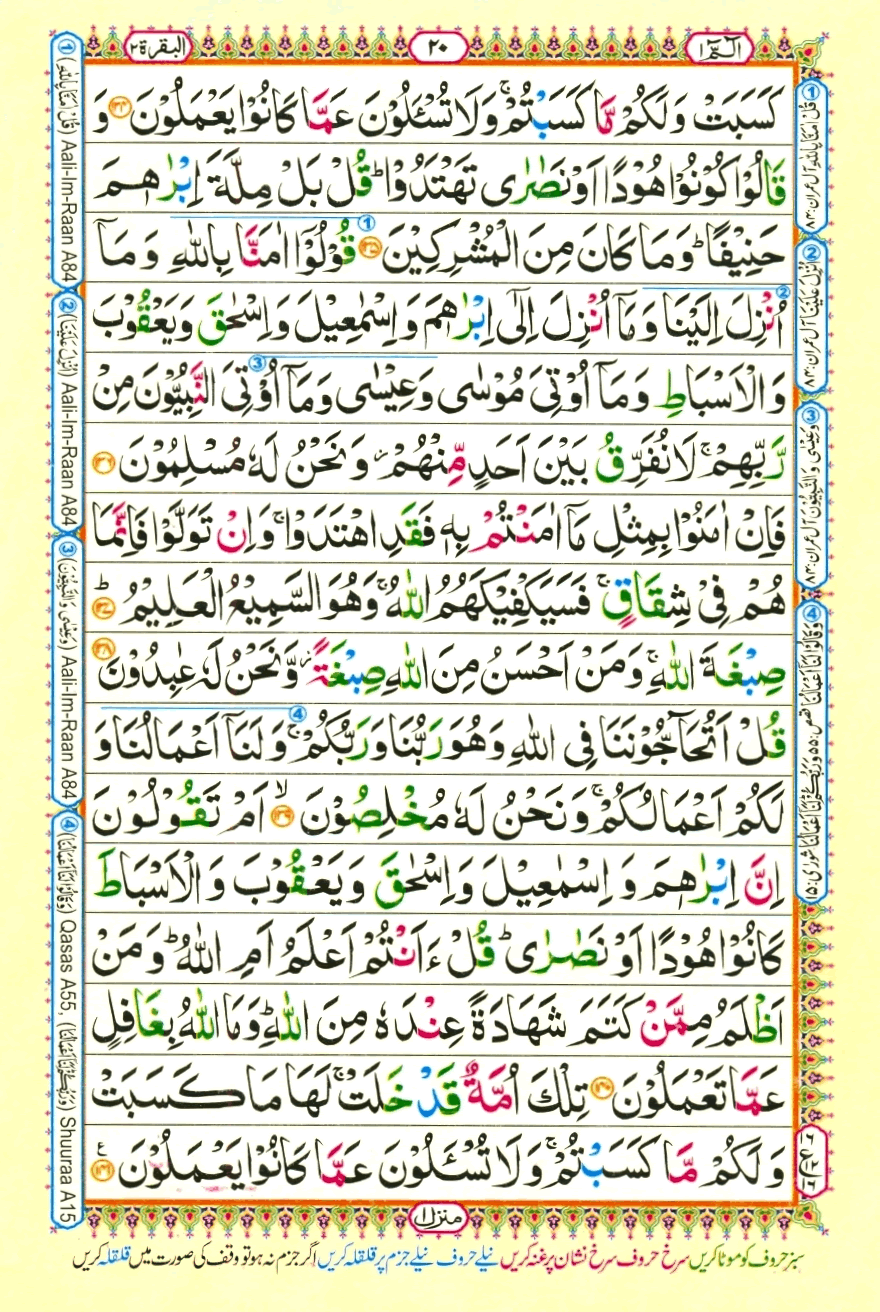 الٓمّٓ ١
٢٠
البقرة ٢
كَسَبَتْ وَلَكُمْ مَّا كَسَبْتُمْ ۚ وَلَا تُسْـَٔلُوْنَ عَمَّا كَانُوْا يَعْمَلُوْنَ ﴿۱۳۴﴾ وَ
قَالُوْا كُوْنُوْا هُوْدًا اَوْ نَصٰرٰى تَهْتَدُوْا ؕ قُلْ بَلْ مِلَّةَ اِبْرٰهٖمَ
حَنِيْفًا ؕ وَمَا كَانَ مِنَ الْمُشْرِكِيْنَ ﴿۱۳۵﴾ ① قُوْلُوْۤا اٰمَنَّا بِاللّٰهِ وَمَاۤ
② اُنْزِلَ اِلَيْنَا وَمَاۤ اُنْزِلَ اِلٰۤى اِبْرٰهٖمَ وَاِسْمٰعِيْلَ وَاِسْحٰقَ وَيَعْقُوْبَ
وَالْاَسْبَاطِ وَمَاۤ اُوْتِىَ مُوْسٰى ③ وَعِيْسٰى وَمَاۤ اُوْتِىَ النَّبِيُّوْنَ مِنْ
رَّبِّهِمْ ۚ لَا نُفَرِّقُ بَيْنَ اَحَدٍ مِّنْهُمْ ۖ وَنَحْنُ لَهٗ مُسْلِمُوْنَ ﴿۱۳۶﴾
فَاِنْ اٰمَنُوْا بِمِثْلِ مَاۤ اٰمَنْتُمْ بِهٖ فَقَدِ اهْتَدَوْا ۚ وَاِنْ تَوَلَّوْا فَاِنَّمَا
هُمْ فِىْ شِقَاقٍ ۚ فَسَيَكْفِيْكَهُمُ اللّٰهُ ۚ وَهُوَ السَّمِيْعُ الْعَلِيْمُ ؕ ﴿۱۳۷﴾
صِبْغَةَ اللّٰهِ ۚ وَمَنْ اَحْسَنُ مِنَ اللّٰهِ صِبْغَةً ۖ وَّنَحْنُ لَهٗ عٰبِدُوْنَ ﴿۱۳۸﴾
قُلْ اَتُحَآجُّوْنَنَا فِى اللّٰهِ وَهُوَ رَبُّنَا وَرَبُّكُمْ ۚ ④ وَلَنَاۤ اَعْمَالُنَا وَ
لَكُمْ اَعْمَالُكُمْ ۚ وَنَحْنُ لَهٗ مُخْلِصُوْنَ ۙ ﴿۱۳۹﴾ اَمْ تَقُوْلُوْنَ
اِنَّ اِبْرٰهٖمَ وَاِسْمٰعِيْلَ وَاِسْحٰقَ وَيَعْقُوْبَ وَالْاَسْبَاطَ
كَانُوْا هُوْدًا اَوْ نَصٰرٰى ؕ قُلْ ءَاَنْتُمْ اَعْلَمُ اَمِ اللّٰهُ ؕ وَمَنْ
اَظْلَمُ مِمَّنْ كَتَمَ شَهَادَةً عِنْدَهٗ مِنَ اللّٰهِ ؕ وَمَا اللّٰهُ بِغَافِلٍ
عَمَّا تَعْمَلُوْنَ ﴿۱۴۰﴾ تِلْكَ اُمَّةٌ قَدْ خَلَتْ ۚ لَهَا مَا كَسَبَتْ
وَلَكُمْ مَّا كَسَبْتُمْ ۚ وَلَا تُسْـَٔلُوْنَ عَمَّا كَانُوْا يَعْمَلُوْنَ ﴿۱۴۱﴾ ع
① قُلْ اٰمَنَّا بِاللّٰهِ آل عمران: ٨٤
② اُنْزِلَ عَلَيْنَا آل عمران: ٨٤
③ وَعِيْسٰى وَالنَّبِيُّوْنَ آل عمران: ٨٤
④ وَقَالُوْا لَنَا اَعْمَالُنَا قصص: ٥٥ وَرَبُّكُمْ لَنَا اَعْمَالُنَا شورى: ١٥
① (قُلْ اٰمَنَّا بِاللّٰهِ) Aali-Im-Raan A84
② (اُنْزِلَ عَلَيْنَا) Aali-Im-Raan A84
③ (وَعِيْسٰى وَالنَّبِيُّوْنَ) Aali-Im-Raan A84
④ (وَقَالُوْا لَنَا اَعْمَالُنَا) Qasas A55, (وَرَبُّكُمْ لَنَا اَعْمَالُنَا) Shuuraa A15
منزل ١
سبز حروف کو موٹا کریں سرخ حروف سرخ نشان پر غنہ کریں نیلے حروف نیلے جزم پر قلقلہ کریں اگر جزم نہ ہو تو وقف کی صورت میں قلقلہ کریں